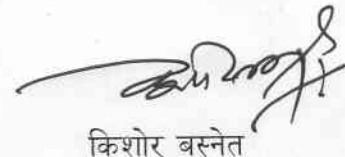 किशोर बस्नेत